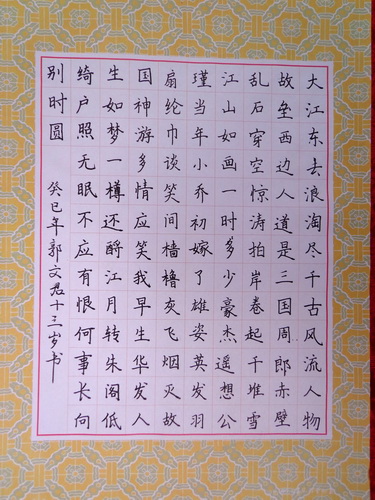 大江东去浪淘尽千古风流人物
故垒西边人道是三国周郎赤壁
乱石穿空惊涛拍岸卷起千堆雪
江山如画一时多少豪杰遥想公
瑾当年小乔初嫁了雄姿英发羽
扇纶巾谈笑间樯橹灰飞烟灭故
国神游多情应笑我早生华发人
生如梦一樽还酹江月转朱阁低
绮户照无眠不应有恨何事长向
别时圆
癸巳年郭文君十三岁书